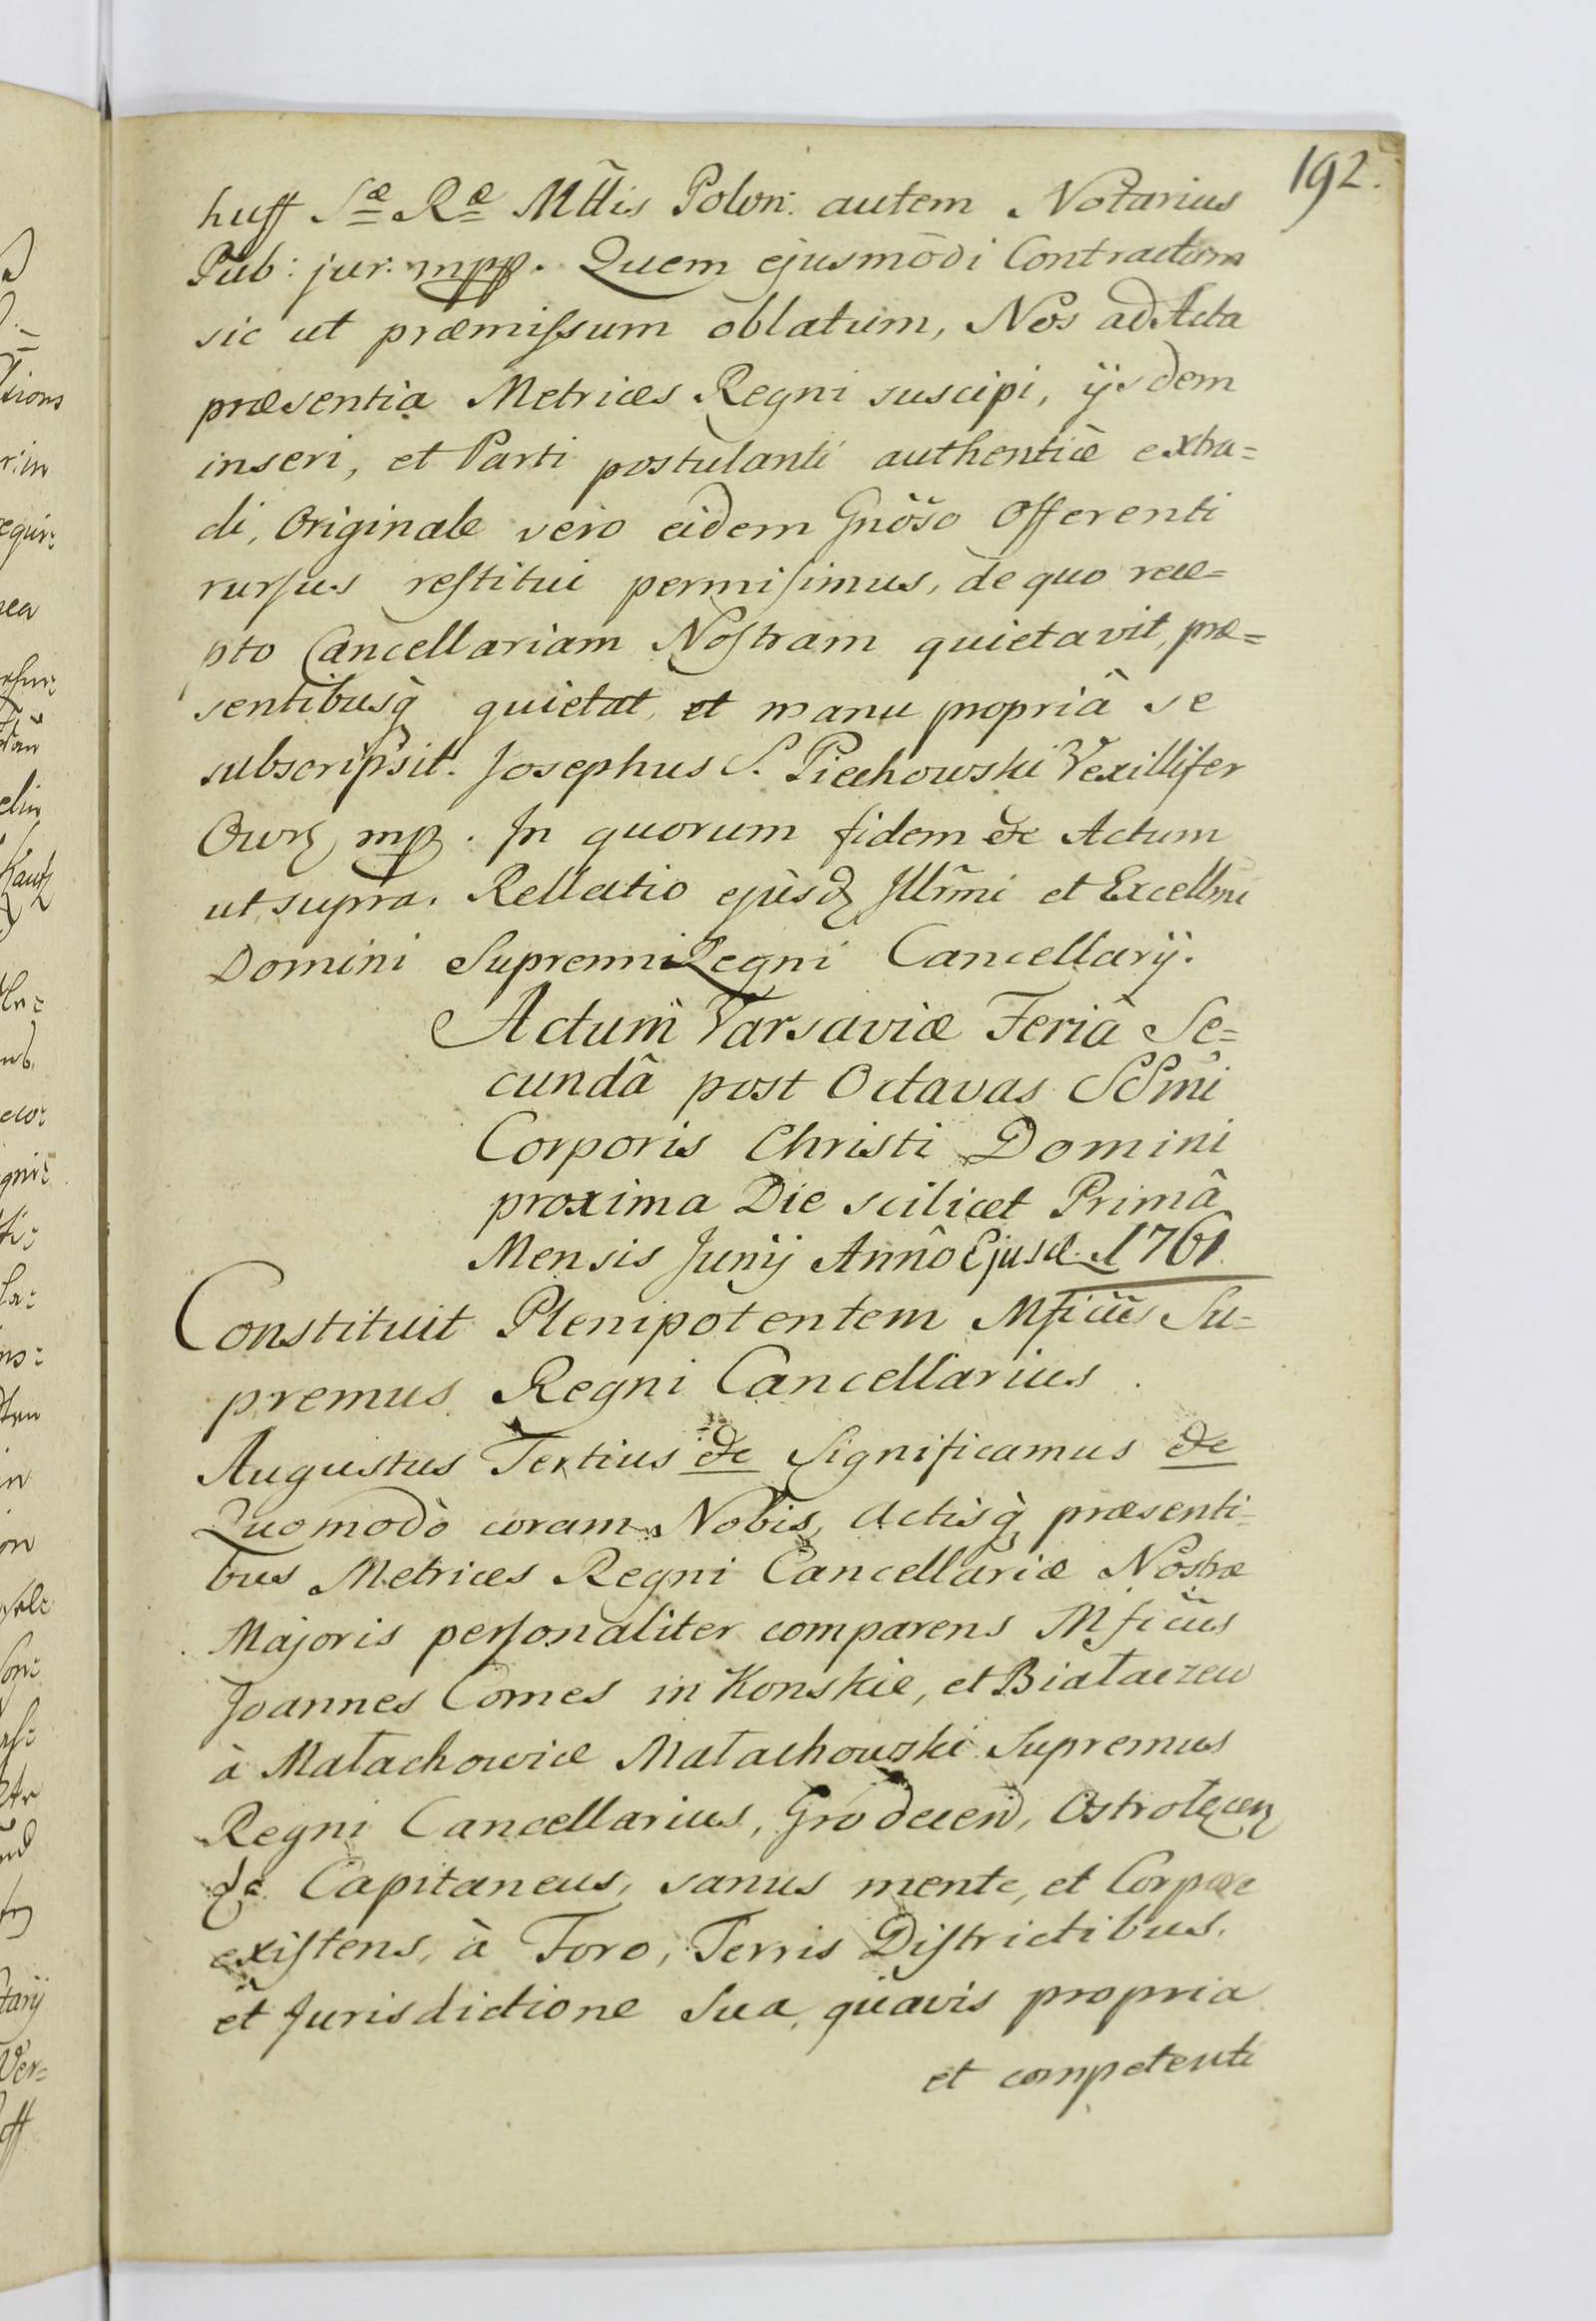 192.
huff Sæ Ræ Mttis Polon: autem Notarius
Pub: jur: mpp. Quem ejusmodi Contractum
sic ut præmissum oblatum, Nos ad Acta
præsentia Metrices Regni suscipi, ijsdem
inseri, et Parti postulanti authenticè extra=
di, Originale vero eidem Gnôso Offerenti
rursus restitui permisimus, de quo rece=
pto Cancellariam Nostram quietavit, præ=
sentibusq̀ quietat, et manu propriâ se
subscripsit. Josephus S. Piechowski Vexillifer
mpp. In quorum fidem &c Actum
ut supra. Rellatio ejusd Illr̃mi et Excellm̃i
Domini Supremi Regni Cancellarij.
Actum Varsaviæ Feriâ Se=
cundâ post Octavas SSmi
Corporis Christi Domini
proxima Die scilicet Primâ
Mensis Junij Annô Ejusd. 1761
Constituit Plenipotentem Mficus Su=
premus Regni Cancellarius.
Augustus Tertius &c Significamus &c
Quomodò coram Nobis, Actisq̀ præsenti=
bus Metrices Regni Cancellariæ Nostræ
Majoris personaliter comparens Mficus
Joannes Comes in Konskie, et Białaczew
à Małachowice Małachowski Supremus
Regni Cancellarius, Grodecen, Ostrołęcen
&c Capitaneus, sanus mente, et Corpore
existens, à Foro, Terris Districtibus,
et Jurisdictione Sua, quavis propria
et competenti